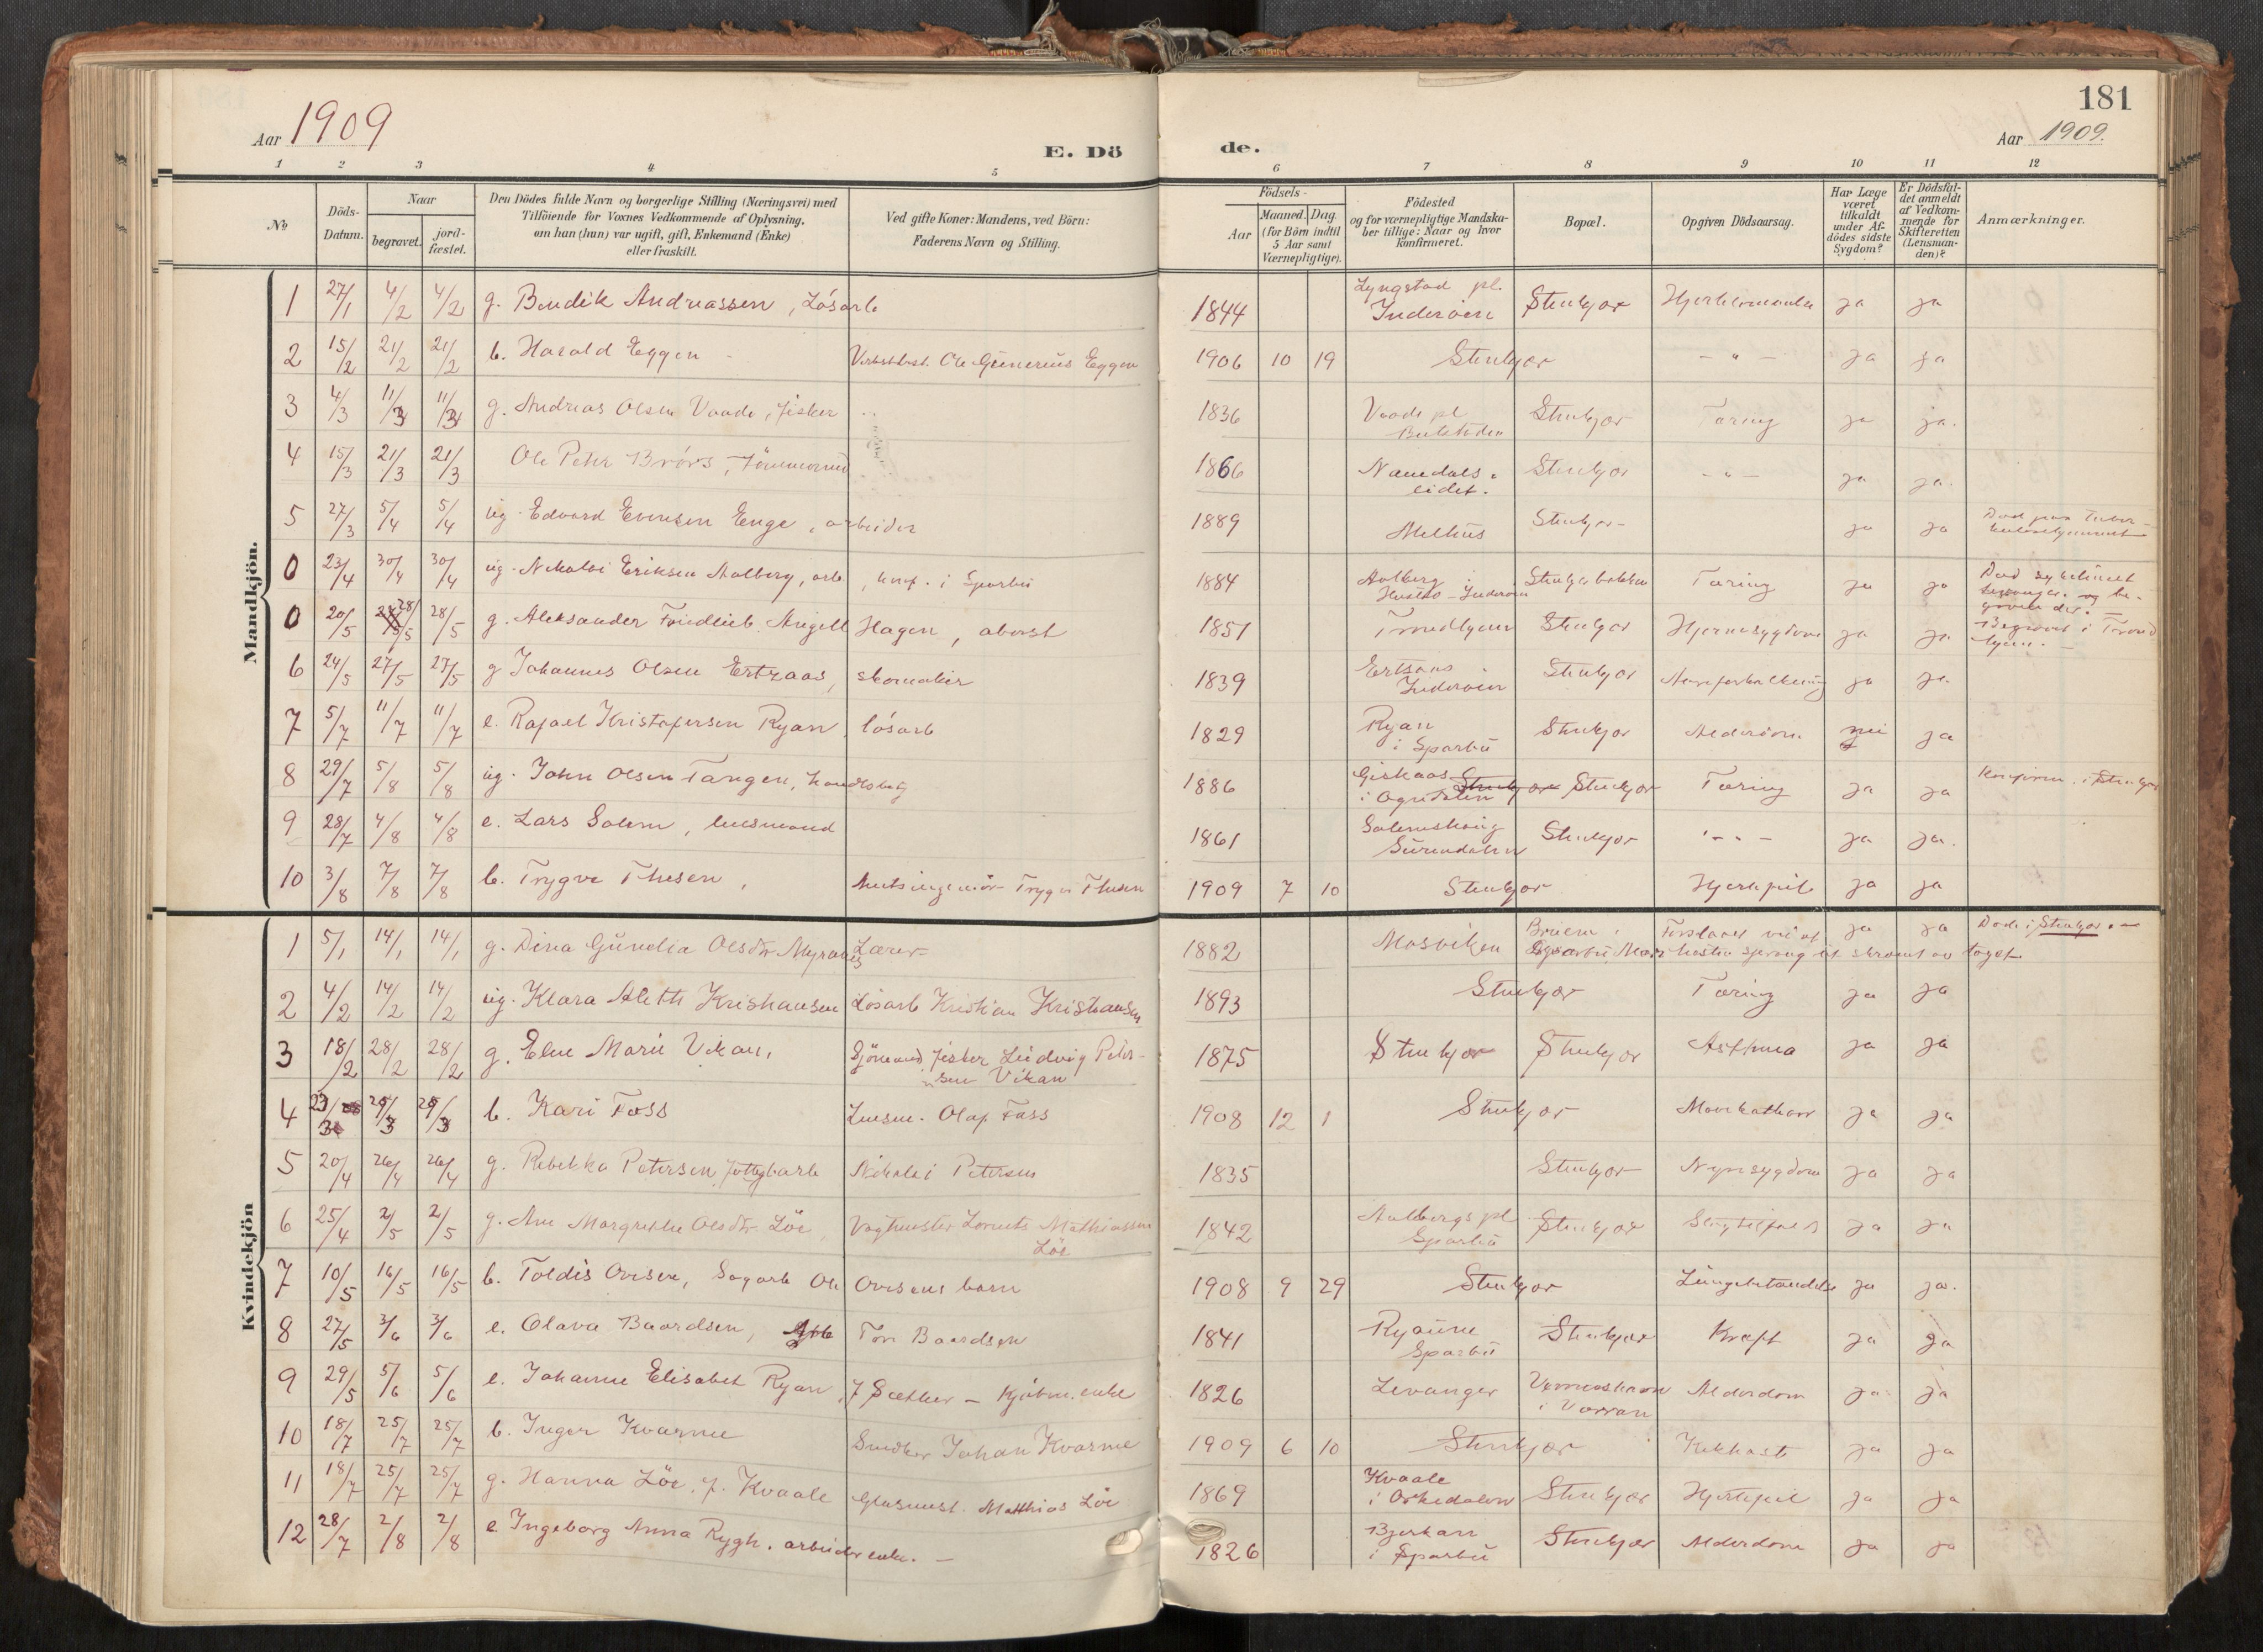 181
Aar 1909
Aar 1909.
E. Dö
de.
1 2 3 4 5 6 7 8 9 10 11 12
No.
Döds-Datum.
Naar
begravet.
jord-fæstet.
Den Dödes fulde Navn og borgerlige Stilling (Næringsvei) med
Tilföiende for Voxnes Vedkommende af Oplysning,
om han (hun) var ugift, gift, Enkemand (Enke)
eller fraskilt.
Ved gifte Koner: Mandens, ved Börn:
Faderens Navn og Stilling.
Födsels-
Aar
Maaned. Dag.
(for Börn indtil
5 Aar samt
Værnepligtige).
Födested
og for værnepligtige Mandska-
ber tillige: Naar og hvor
konfirmeret.
Bopæl.
Opgiven Dödsaarsag.
Har Læge
været
tilkaldt
under Af-
dödes sidste
Sygdom?
Er Dödsfal-
det anmeldt
af Vedkom-
mende for
Skifteretten
(Lensman-
den)?
Anmærkninger.
Mandkjön.
1 27/1 4/2 4/2 g. Bendik Andreassen, Lösarb 1844 Lyngstad pl. Inderöen Stenkjær ja ja
2 15/2 21/2 21/2 b. Harald Eggen Ole Gunerius Eggen 1906 10 19 Stenkjær - " - ja ja
3 4/3 11/3 11/3 g. Andreas Olsen Vaade, fisker 1836 Vaade pl Stenkjær Tæring ja ja.
4 15/3 21/3 21/3 Ole Peter Brörs, Tömmermand 1866 Namdals-eidet. Stenkjær - " - ja ja.
5 27/3 5/4 5/4 ug. Edvard Evensen Enge, arbeider 1889 Melhus Stenkjær ja ja Död paa Tuber-kulosehjemmet
0 23/4 30/4 30/4 ug. Nikolai Eriksen Aalberg, arb. , konf. i Sparbu 1884 Aalberg Hustad - Inderöen Stenkjærbakken Tæring ja ja Död
0 20/5 28/5 28/5 g. Aleksander Friedlieb Angell Hagen, 1851 Trondhjem Stenkjær Hjernesygdom ja ja Begravet i Trond-hjem.
6 24/5 27/5 27/5 g Johannes Olsen Ertzaas, skomaker 1839 Ertsaas Inderöen Stenkjær Aareforkalkning ja ja
7 5/7 11/7 11/7 e. Rafael Kristofersen Ryan, lösarb 1829 Ryan i Sparbu Stenkjær Alderdom nei ja
8 29/7 5/8 5/8 ug. John Olsen Tangen, handelsbetj 1886 Giskaas i Ogndalen Stenkjær Stenkjær Tæring ja ja Konfirm. i Stenkjær
9 28/7 4/8 4/8 e. Lars Solem, lensmand 1861 Solemshaug Surendalen Stenkjær - " - ja ja.
10 3/8 7/8 7/8 b. Trygve Thesen, Amtsingeniör Trygve Thesen 1909 7 10 Stenkjær Hjertefeil ja ja
Kvindekjön
1 5/1 14/1 14/1 g. Dina Gunelia Olsdtr Myraas Lærer 1882 Mosviken ja ja Död i Stenkjær.
2 4/2 14/2 14/2 ug. Klara Aleth Kristiansen Lösarb Kristian Kristiansen 1893 Stenkjær Tæring ja ja
3 18/2 28/2 28/2 g. Eline Marie Vikan, Sjömand fisker Ludvig Peter-sen Vikan 1875 Stenkjær Stenkjær Asthma ja ja
4 b. Kari Foss Lensm. Olaf Foss 1908 12 1 Stenkjær Mavekatharr ja ja
5 20/4 26/4 26/4 g. Rebekka Petersen Nikolai Petersen 1835 Stenkjær Nyresygdom ja ja
6 25/4 2/5 2/5 g. Ane Margrethe Olsdtr Löe, Vagtmester Lornts Mathiassen Löe 1842 Aalbergs pl Sparbu Stenkjær Slagtilfæld ja ja
7 10/5 16/5 16/5 b. Toldis Ovesen, Sagarb Ole Ovesens barn 1908 9 29 Stenkjær Lungebetændelse ja ja.
8 27/5 3/6 3/6 e. Olava Baardsen, Tore Baardsen 1841 Ryaune Sparbu Stenkjær Kræft ja ja
9 29/5 5/6 5/6 e. Johanne Elisabet Ryan, f Sæther - Kjöbm. enke 1826 Levanger i Værran Alderdom ja ja
10 18/7 25/7 25/7 b. Inger Kvarme Snedker Johan Kvarme 1909 6 10 Stenkjær Kikhoste ja ja
11 18/7 25/7 25/7 g. Hanna Löe, f. Kvaale Glasmest. Matthias Löe 1869 Kvaale i Orkedalen Stenkjær Hjertefeil ja ja
12 28/7 2/8 2/8 e Ingeborg Anna Rygh. arbeider enke. 1826 Bjerkan i Sparbu Stenkjær Alderdom ja ja